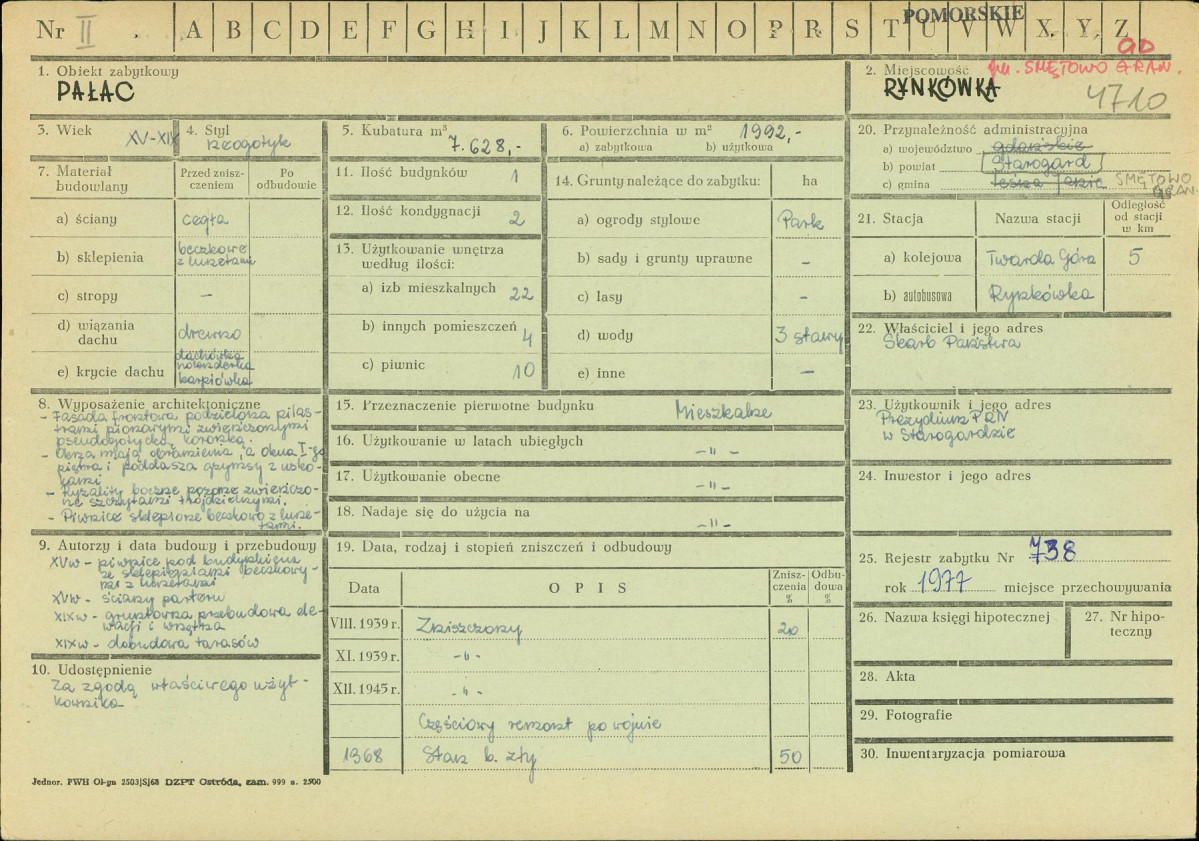 Nr II A B C D E F G H I J K L M N O P R S T U V W X Y Z
POMORSKIE
1. Obiekt zabytkowy
PAŁAC
2. Miejscowość gm. SMĘTOWO GRAN.
RYNKÓWKA
4710
3. Wiek XV-XIX
4. Styl
Neogotyk
5. Kubatura m³
7.628,-
6. Powierzchnia w m² 1992,-
a) zabytkowa b) użytkowa
7. Materiał budowlany
Przed zniszczeniem
Po odbudowie
a) ściany cegła
b) sklepienia beczkowe
z lunetami
c) stropy –
d) wiązania dachu drewno
e) krycie dachu dachówka
holenderka
karpiówka
8. Wyposażenie architektoniczne
- Fasada frontowa podzielona pilas-
trami pionowymi zwieńczonymi
pseudogotycką koronką.
- Okna mają obramienia, a okna I-go
piętra i poddasza gzymsy z usko-
kami
- Ryzality boczne pozorne zwieńczo-
ne szczytami trójdzielnymi.
- Piwnice sklepione beczkowo z lune-
tami.
9. Autorzy i data budowy i przebudowy
XVw - piwnice pod budynkiem
ze sklepieniami beczkowy-
mi z lunetami
XVw - ściany parteru
XIXw - gruntowna przebudowa ele-
wacji i wnętrza
XIXw - dobudowa tarasów
10. Udostępnienie
Za zgodą właściwego użyt-
kownika
11. Ilość budynków 1
12. Ilość kondygnacji 2
13. Użytkowanie wnętrza
według ilości:
a) izb mieszkalnych 22
b) innych pomieszczeń 4
c) piwnic 10
14. Grunty należące do zabytku: ha
a) ogrody stylowe Park
b) sady i grunty uprawne –
c) lasy –
d) wody 3 stawy
e) inne –
15. Przeznaczenie pierwotne budynku Mieszkalne
16. Użytkowanie w latach ubiegłych -"-
17. Użytkowanie obecne -"-
18. Nadaje się do użycia na -"-
19. Data, rodzaj i stopień zniszczeń i odbudowy
Data O P I S Zniszczenia % Odbudowa %
VIII. 1939 r. Zniszczony 20
XI. 1939 r. -"-
XII. 1945 r. -"-
Częściowy remont po wojnie
1968 Stan b. zły 50
20. Przynależność administracyjna
a) województwo gdańskie
b) powiat Starogard
c) gmina SMĘTOWO
GRAN.
21. Stacja Nazwa stacji Odległość od stacji w km
a) kolejowa Twarda Góra 5
b) autobusowa Rynkówka
22. Właściciel i jego adres
Skarb Państwa
23. Użytkownik i jego adres
Prezydium PRN
w Starogardzie
24. Inwestor i jego adres
25. Rejestr zabytku Nr 738
rok 1977 miejsce przechowywania
26. Nazwa księgi hipotecznej
27. Nr hipoteczny
28. Akta
29. Fotografie
30. Inwentaryzacja pomiarowa
Jednor. PWH Ol-yn 2503/S/68 DZPT Ostróda, zam. 999 n. 2500